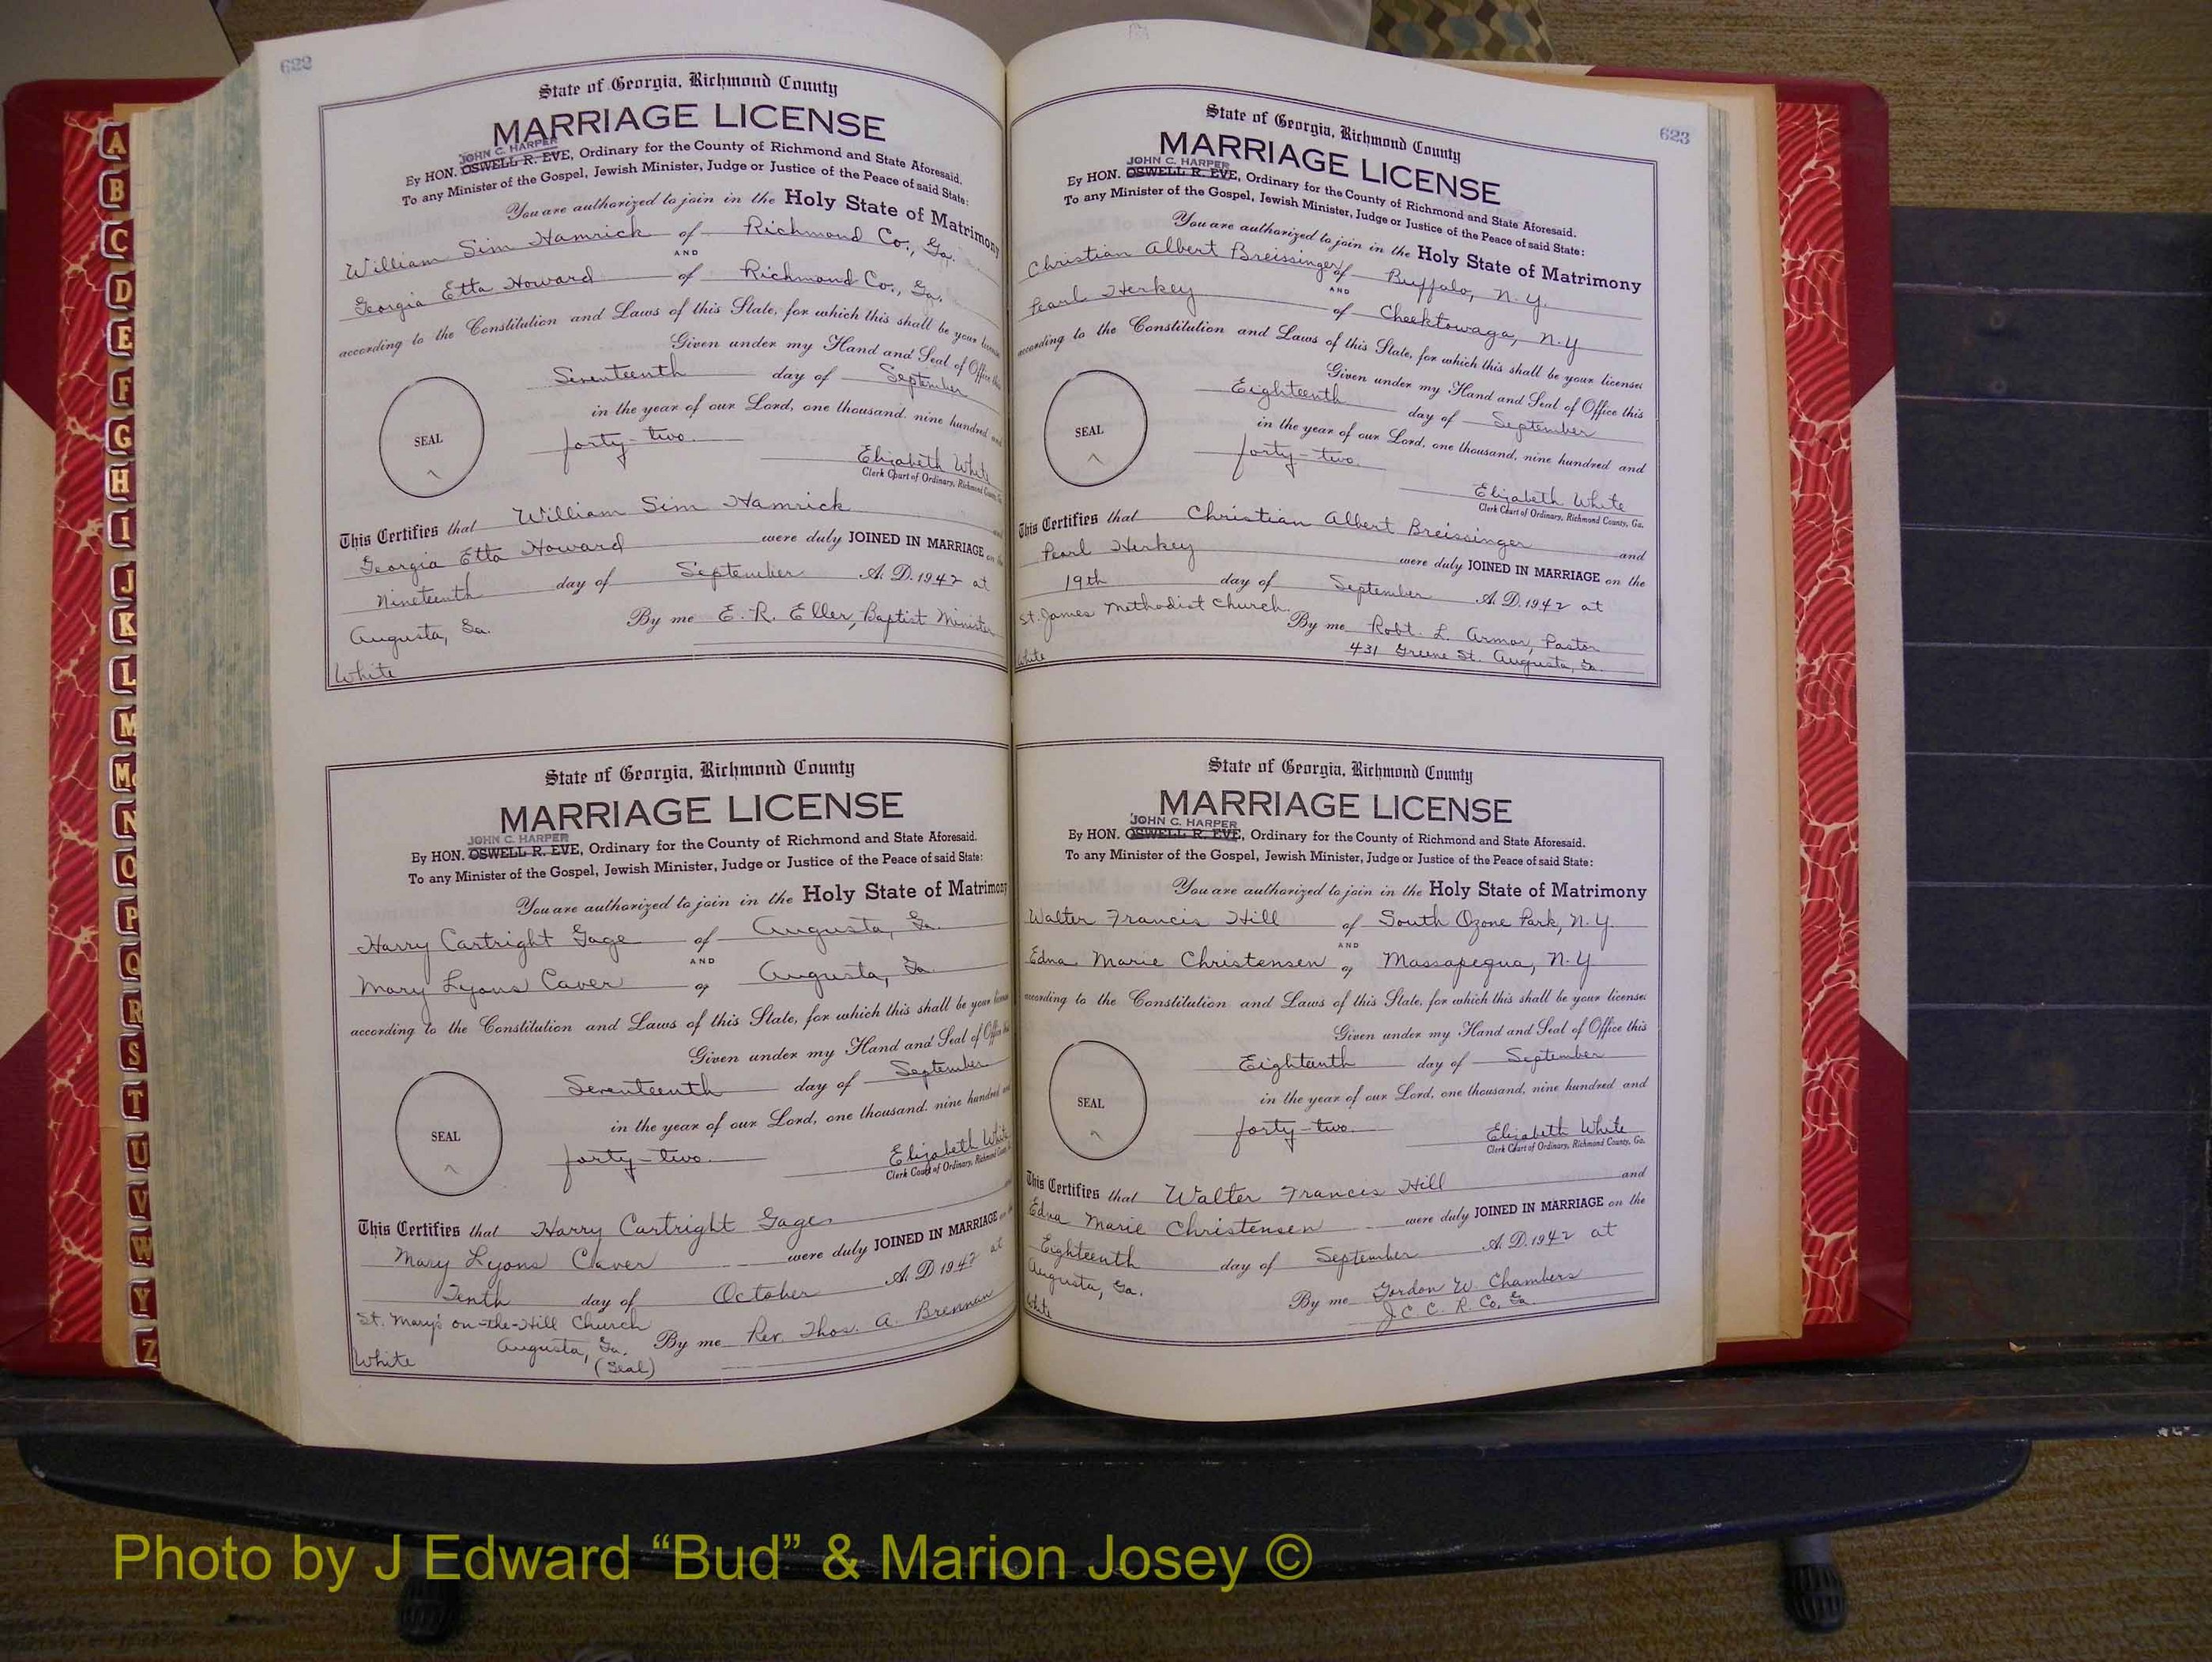 622
State of Georgia, Richmond County
MARRIAGE LICENSE
JOHN C. HARPER
By HON. OSWELL R. EVE, Ordinary for the County of Richmond and State Aforesaid.
To any Minister of the Gospel, Jewish Minister, Judge or Justice of the Peace of said State:
You are authorized to join in the Holy State of Matrimony
William Sim Hamrick of Richmond Co., Ga.
AND
Georgia Etta Howard of Richmond Co., Ga.
according to the Constitution and Laws of this State, for which this shall be your license
Given under my Hand and Seal of Office this
Seventeenth day of September
in the year of our Lord, one thousand, nine hundred and
SEAL
forty-two
Elizabeth White
Clerk Court of Ordinary, Richmond County, Ga.
This Certifies that William Sim Hamrick and
Georgia Etta Howard were duly JOINED IN MARRIAGE on the
Nineteenth day of September A. D. 1942 at
Augusta, Ga. By me E. R. Eller, Baptist Minister
White
State of Georgia, Richmond County
MARRIAGE LICENSE
JOHN C. HARPER
By HON. OSWELL R. EVE, Ordinary for the County of Richmond and State Aforesaid.
To any Minister of the Gospel, Jewish Minister, Judge or Justice of the Peace of said State:
You are authorized to join in the Holy State of Matrimony
Harry Cartright Gage of Augusta, Ga.
AND
Mary Lyons Caver of Augusta, Ga.
according to the Constitution and Laws of this State, for which this shall be your license
Given under my Hand and Seal of Office this
Seventeenth day of September
in the year of our Lord, one thousand, nine hundred and
SEAL
forty-two
Elizabeth White
Clerk Court of Ordinary, Richmond County
This Certifies that Harry Cartright Gage and
Mary Lyons Caver were duly JOINED IN MARRIAGE on the
Tenth day of October A. D. 1942 at
St. Mary's on-the-Hill Church
Augusta, Ga. By me Rev. Thos. A. Brennan
(Seal)
White
623
State of Georgia, Richmond County
MARRIAGE LICENSE
JOHN C. HARPER
By HON. OSWELL R. EVE, Ordinary for the County of Richmond and State Aforesaid.
To any Minister of the Gospel, Jewish Minister, Judge or Justice of the Peace of said State:
You are authorized to join in the Holy State of Matrimony
Christian Albert Breissinger of Buffalo, N.Y.
AND
Pearl Herkey of Cheektowaga, N.Y
according to the Constitution and Laws of this State, for which this shall be your license:
Given under my Hand and Seal of Office this
Eighteenth day of September
in the year of our Lord, one thousand, nine hundred and
SEAL
forty-two
Elizabeth White
Clerk Court of Ordinary, Richmond County, Ga.
This Certifies that Christian Albert Breissinger and
Pearl Herkey were duly JOINED IN MARRIAGE on the
19th day of September A. D. 1942 at
St. James Methodist Church. By me Robt. L. Armor, Pastor
431 Greene St. Augusta, Ga.
White
State of Georgia, Richmond County
MARRIAGE LICENSE
JOHN C. HARPER
By HON. OSWELL R. EVE, Ordinary for the County of Richmond and State Aforesaid.
To any Minister of the Gospel, Jewish Minister, Judge or Justice of the Peace of said State:
You are authorized to join in the Holy State of Matrimony
Walter Francis Hill of South Ozone Park, N.Y.
AND
Edna Marie Christensen of Massapequa, N.Y
according to the Constitution and Laws of this State, for which this shall be your license:
Given under my Hand and Seal of Office this
Eighteenth day of September
in the year of our Lord, one thousand, nine hundred and
SEAL
forty-two
Elizabeth White
Clerk Court of Ordinary, Richmond County, Ga.
This Certifies that Walter Francis Hill and
Edna Marie Christensen were duly JOINED IN MARRIAGE on the
Eighteenth day of September A. D. 1942 at
Augusta, Ga. By me Gordon W. Chambers
J.C.C. R. Co, Ga
White
A
B
C
D
E
F
G
H
I
J
K
L
M
Mc
N
O
P
Q
R
S
T
U
V
W
Y
Z
Photo by J Edward “Bud” & Marion Josey ©